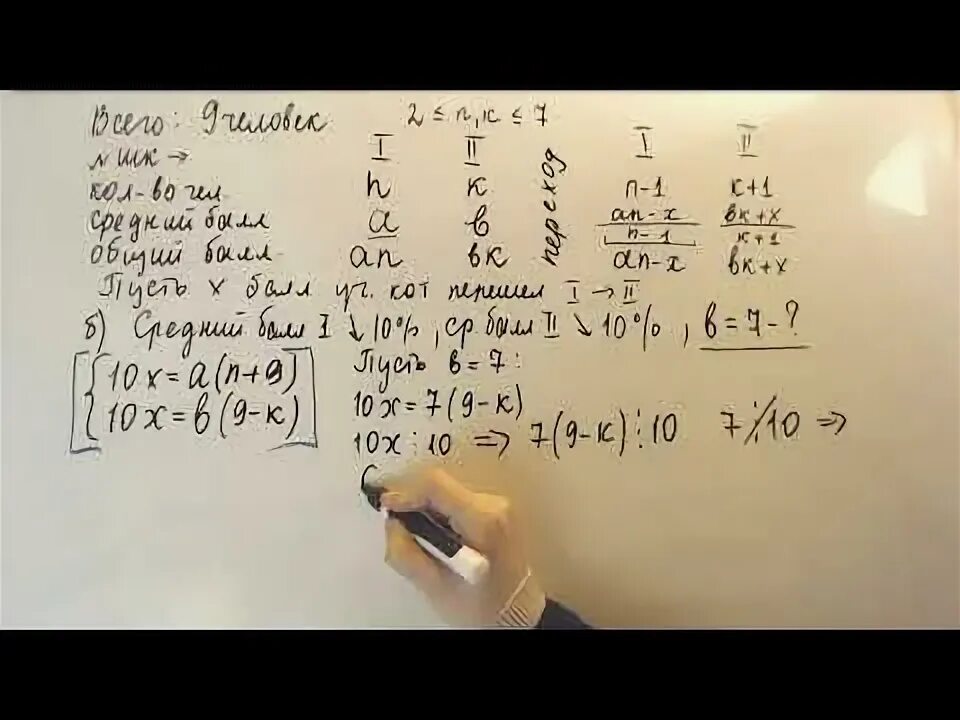 Всего: 9 человек 2 ≤ n, к ≤ 7
№ шк → I II переход I II
кол-во чел. n к n-1 к+1
средний балл а в (an-x)/(n-1) (вк+х)/(к+1)
общий балл an вк an-x вк+х
Пусть х балл уч. кот перешел I → II
б) Средний балл I ↓ 10%, ср. балл II ↘ 10%, в = 7 - ?
10x = a(n+9)
10x = в(9-к)
Пусть в = 7:
10x = 7(9-к)
10x ⋮ 10 => 7(9-к) ⋮ 10 7 ⋮̸ 10 =>
(